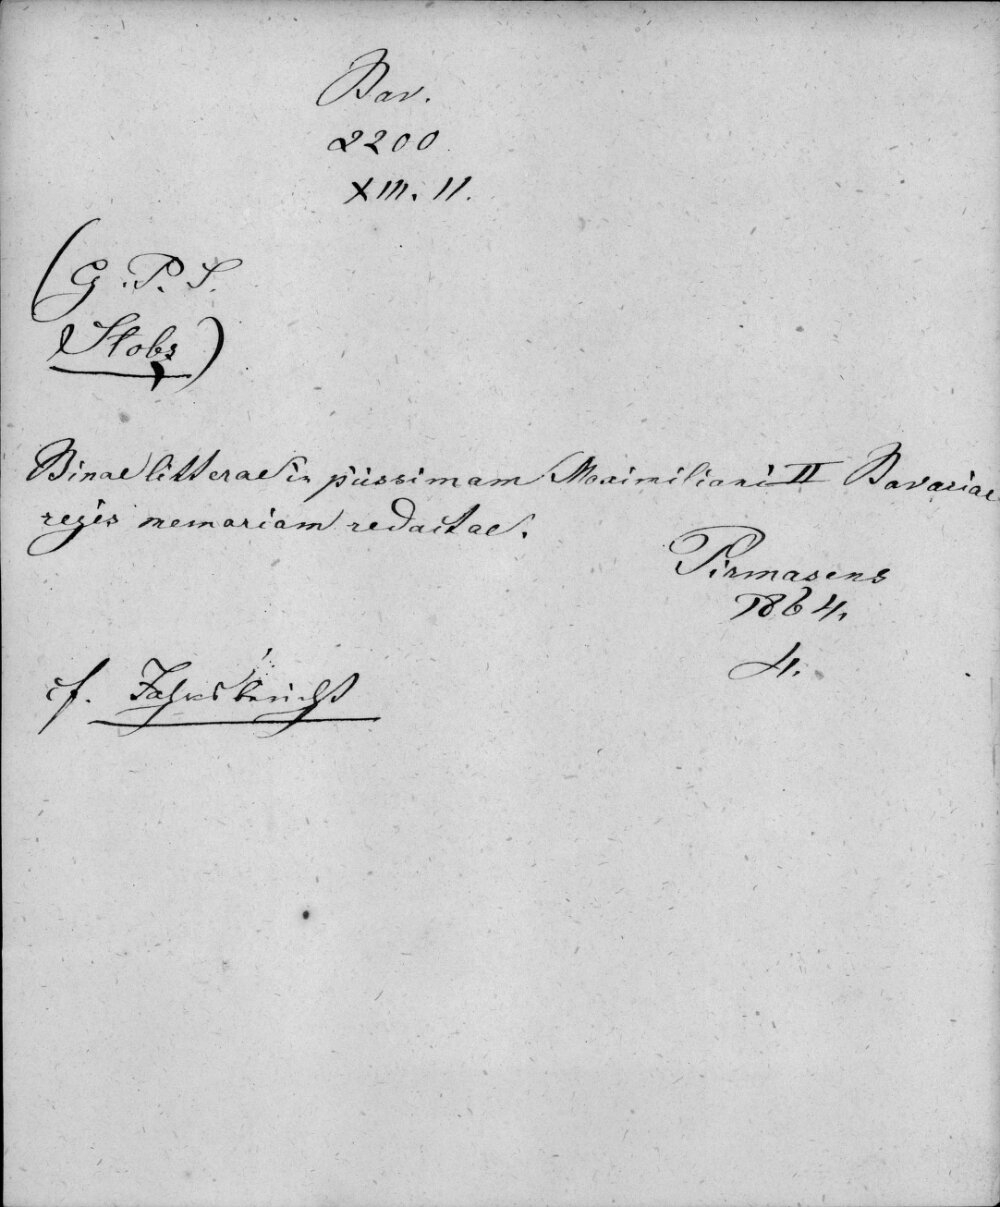 Bav.
2200
XIII. 11.
(G. P. S.
Stobs)
Binae litterae in piissimam Maximiliani II Bavariae
regis memoriam redactae.
Pirmasens
1864.
4.
cf. Jahresbericht